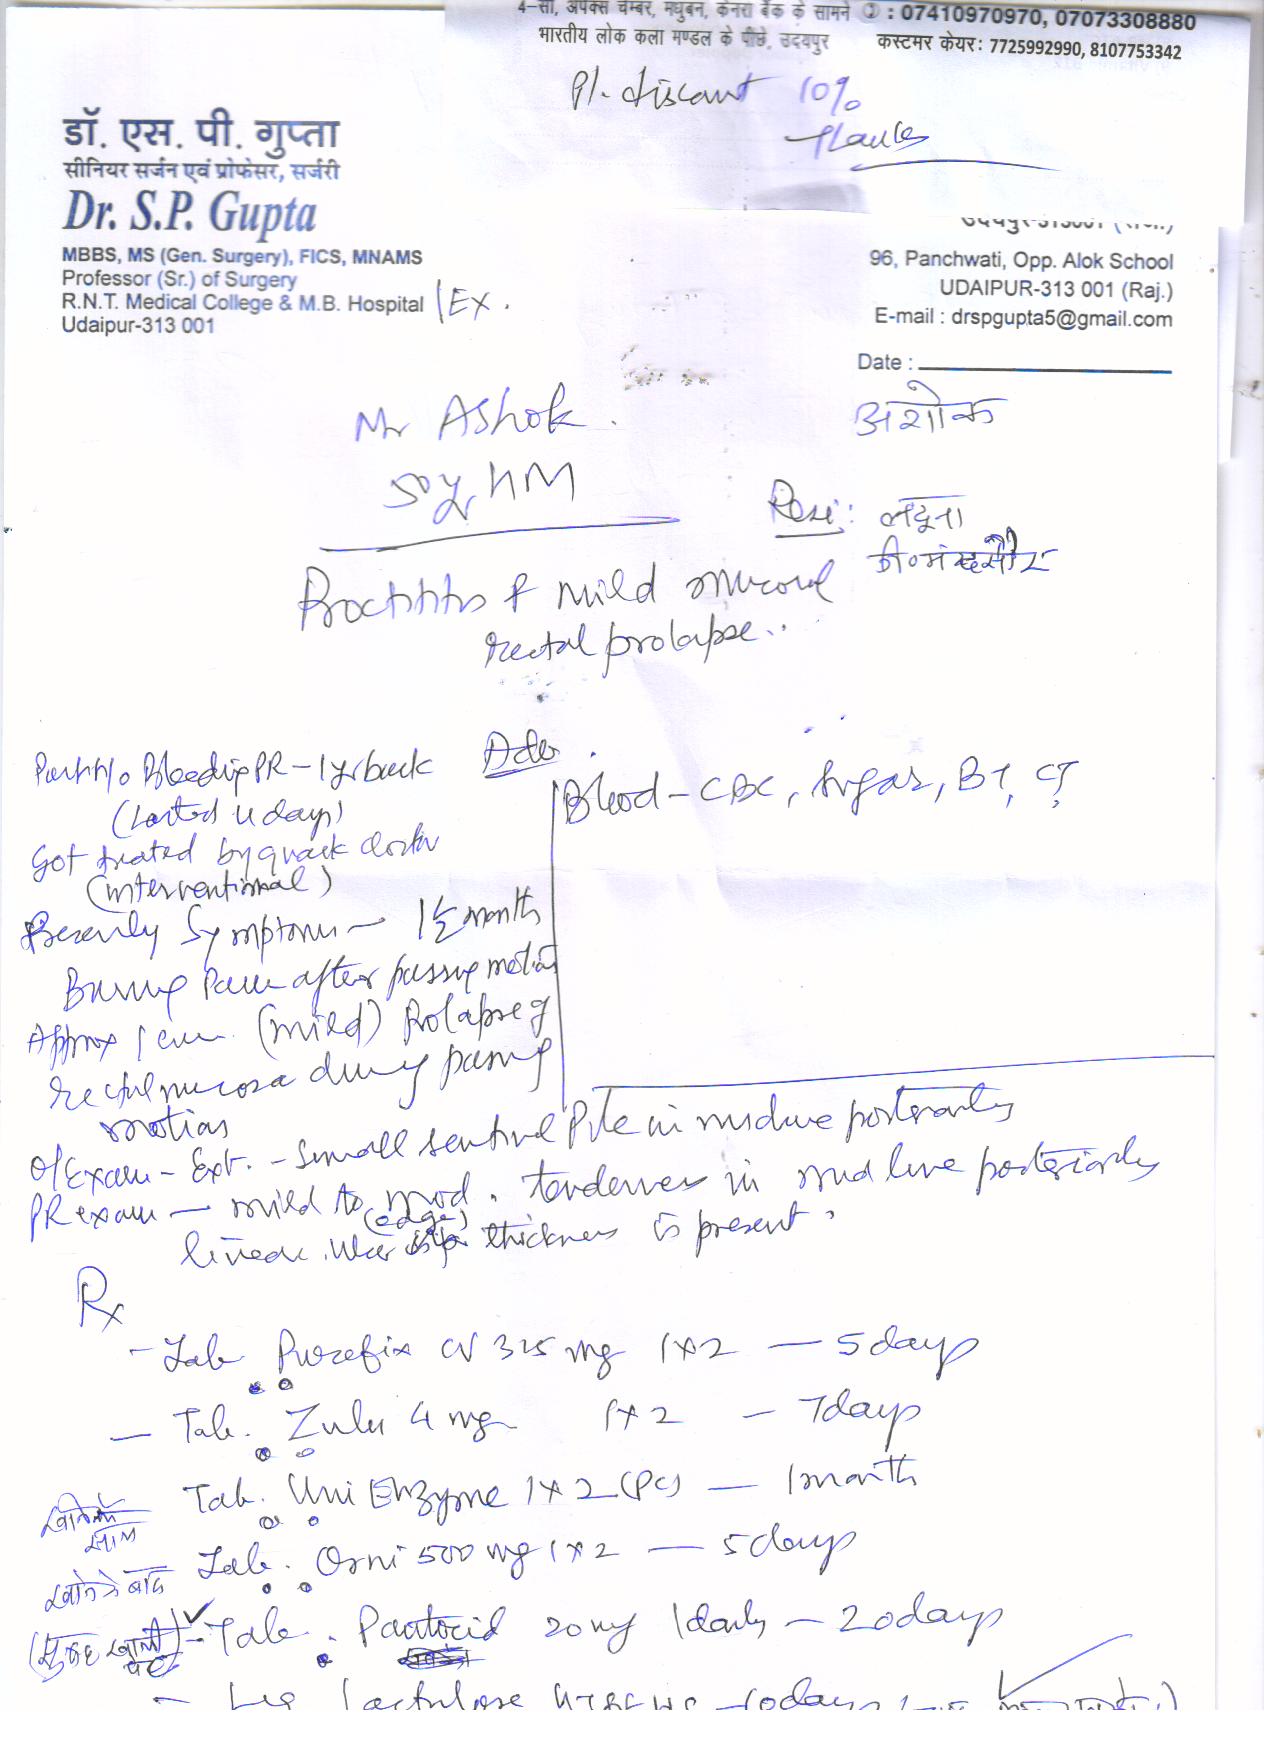 4-सी, अपेक्स चेम्बर, मधुबन, केनरा बैंक के सामने : 07410970970, 07073308880
भारतीय लोक कला मण्डल के पीछे, उदयपुर कस्टमर केयर: 7725992990, 8107753342
Pl. discount 10%
Thanks
डॉ. एस. पी. गुप्ता
सीनियर सर्जन एवं प्रोफेसर, सर्जरी
Dr. S.P. Gupta
MBBS, MS (Gen. Surgery), FICS, MNAMS
Professor (Sr.) of Surgery
R.N.T. Medical College & M.B. Hospital | EX.
Udaipur-313 001
उदयपुर-313001 (राज.)
96, Panchwati, Opp. Alok School
UDAIPUR-313 001 (Raj.)
E-mail : drspgupta5@gmail.com
Date :
Mr Ashok
अशोक
50yr, HM
Resi: लदूना
जि० मंदसौर
Proctitis & mild mucosal
rectal prolapse..
Past h/o Bleeding PR - 1yr back
(Lasted 4 days)
Got treated by quack doctor
(interventional)
Presently Symptoms - 1½ month
Burning Pain after passing motion
Approx 1 cm (mild) Prolapse of
rectal mucosa during passing
motion
Adv.
Blood - CBC, Sugar, BT, CT
O/Exam - Ext. - Small sentinel Pile in midline posteriorly
PR exam - mild to mod. tenderness in mid line posteriorly
linear ulcer (edge) thickness is present.
Rx
- Tab. Purefix CV 325 mg 1x2 - 5 days
- Tab. Zulu 4 mg 1x2 - 7 days
Tab. Uni Enzyme 1x2 (PC) - 1 month
खाने के साथ
Tab. Orni 500 mg 1x2 - 5 days
खाने के बाद
(सुबह खाली पेट) - Tab. Pantocid 20 mg 1 daily - 20 days
- Liq Lactulose